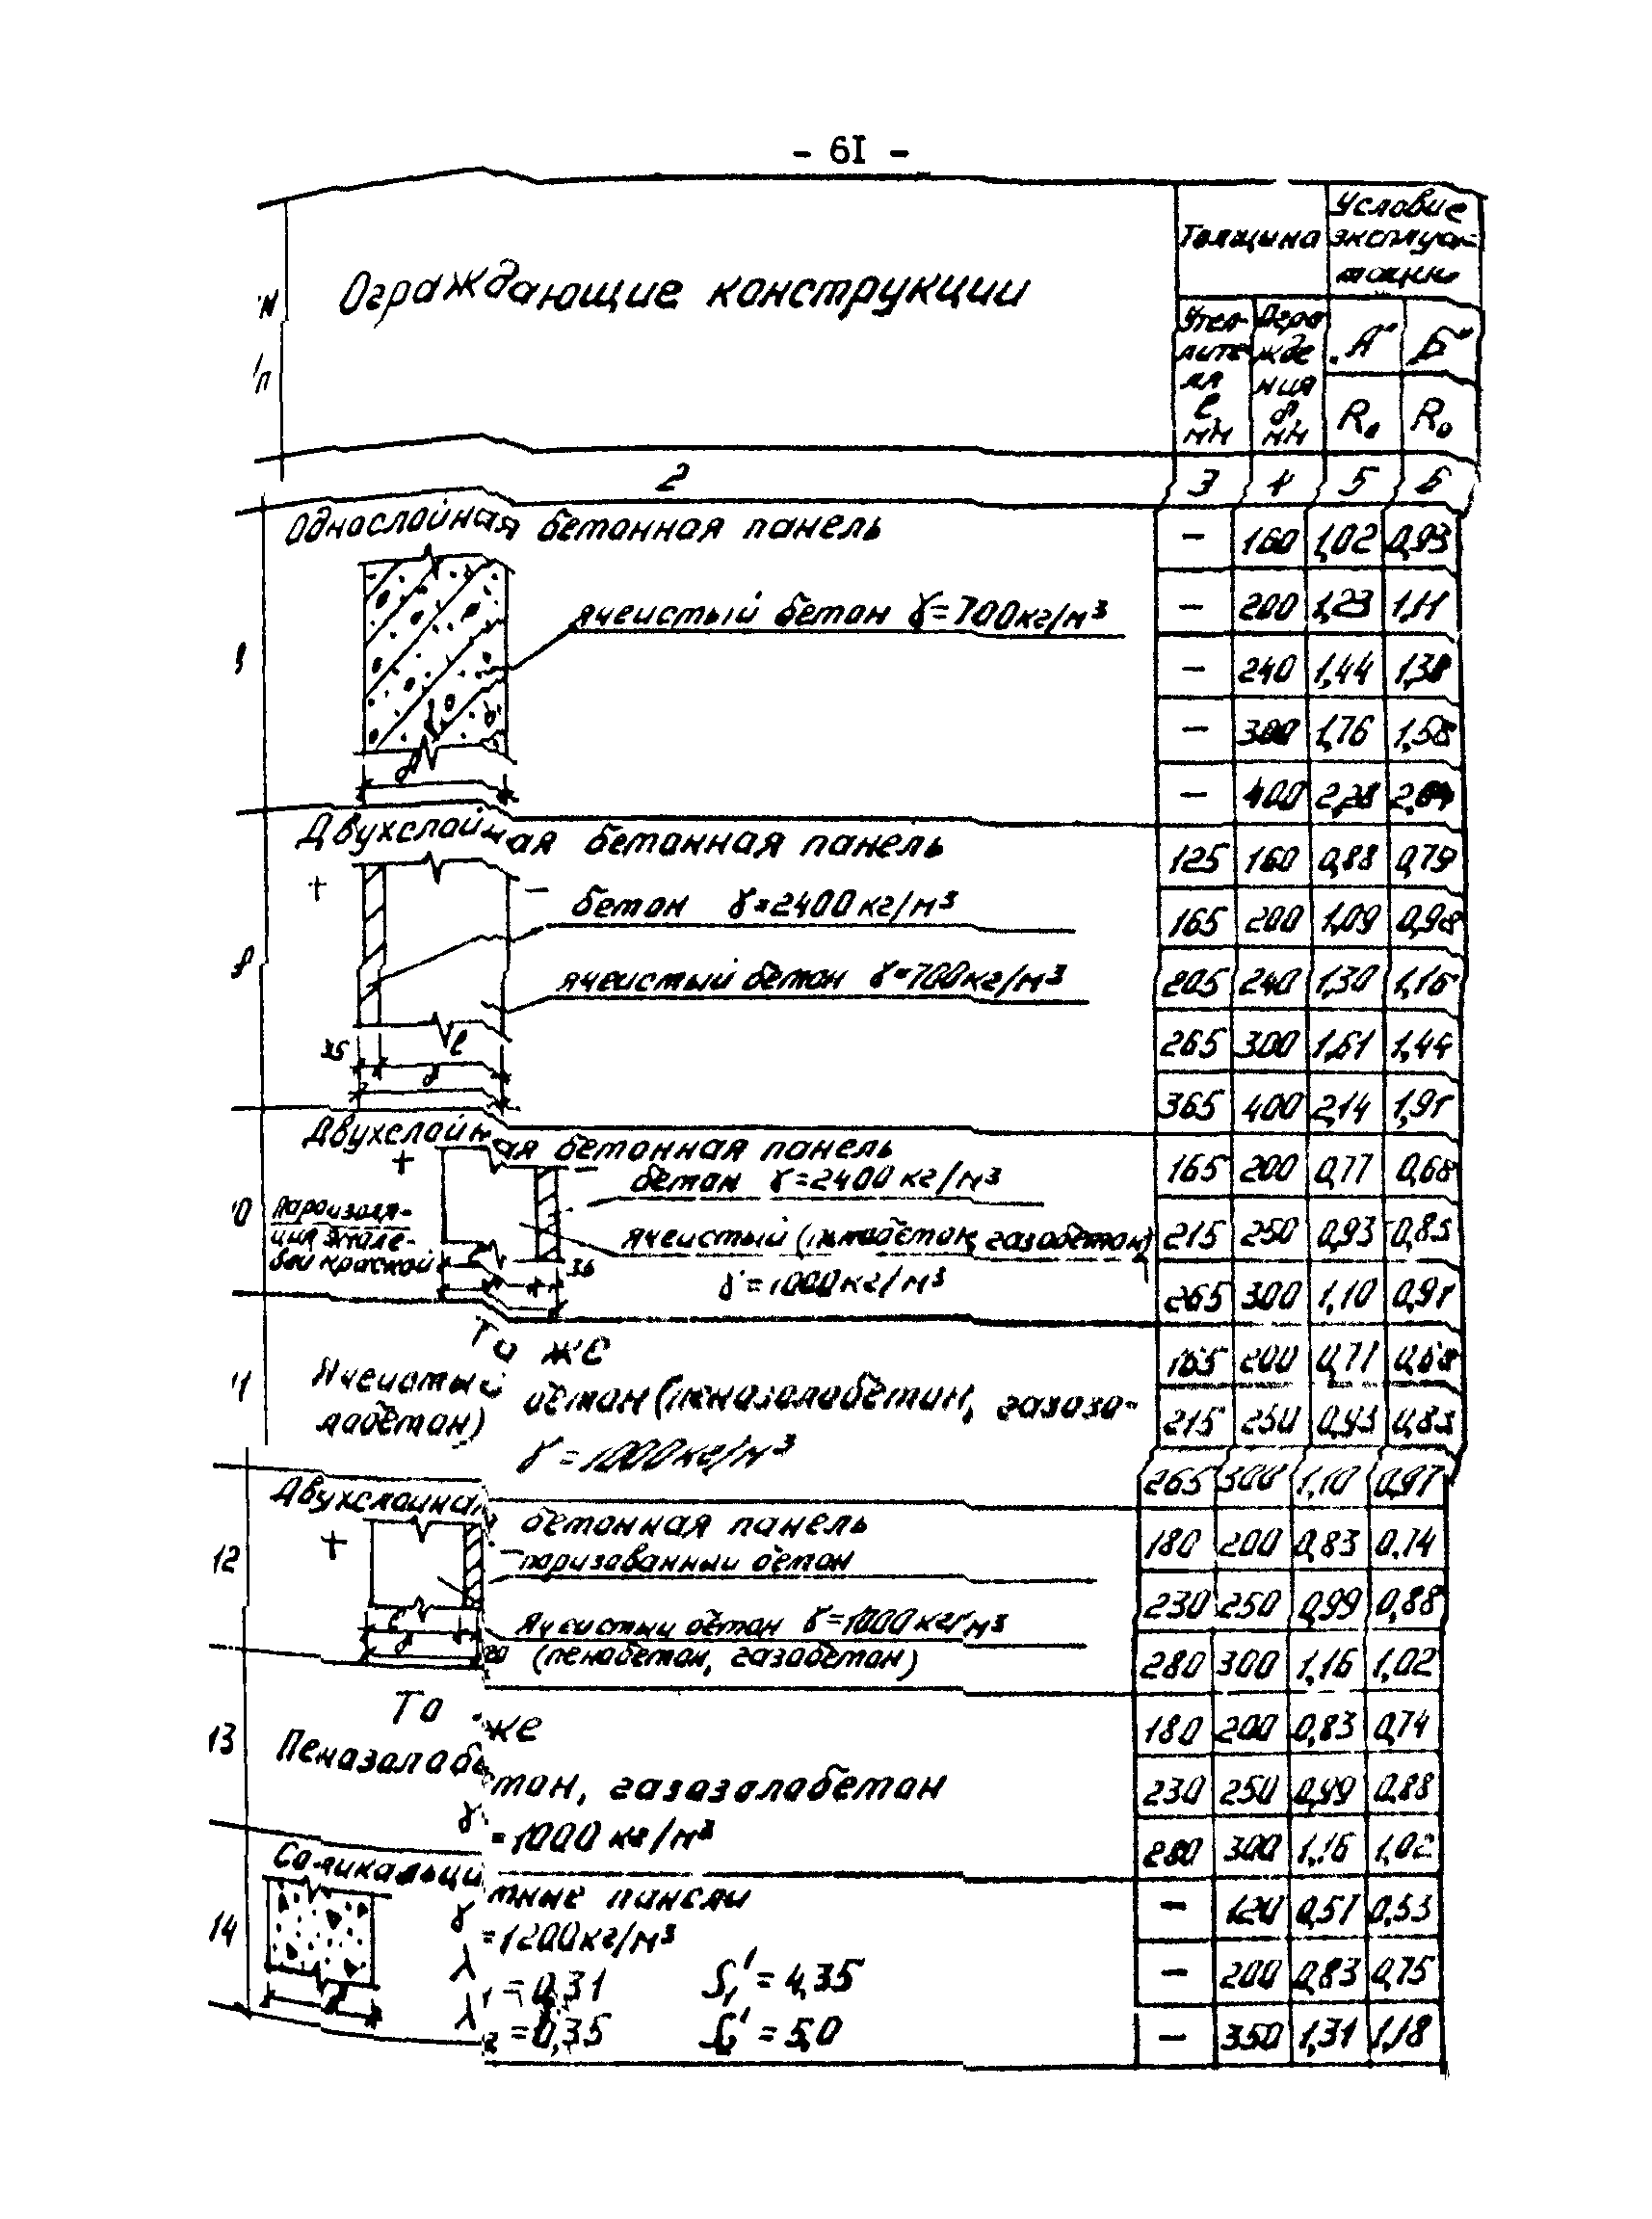 - 61 -
N
п
Ограждающие конструкции
Толщина
Условие
эксплуа-
тации
Утеп-
лите-
ля
ℓ,
мм
Огра
жде
ния
δ,
мм
„А"
„Б"
R₀
R₀
2
3
4
5
6
Однослойная бетонная панель
ячеистый бетон γ=700кг/м³
δ
- 160 1,02 0,93
- 200 1,23 1,11
- 240 1,44
- 300 1,76 1,58
- 400 2,28
9
Двухслойная бетонная панель
+ -
бетон γ=2400кг/м³
ячеистый бетон γ=700кг/м³
35 ℓ
δ
125 160 0,88 0,79
165 200 1,09 0,98
205 240 1,30 1,16
265 300 1,61 1,44
365 400 2,14 1,91
10
Двухслойная бетонная панель
+ -
бетон γ=2400кг/м³
Пароизоля-
ция эмале-
вой краской
ячеистый (пенобетон, газобетон)
γ=1000кг/м³
ℓ 35
165 200 0,77 0,68
215 250 0,93 0,83
265 300 1,10 0,97
11
То же
Ячеистый бетон (пенозолобетон, газозо-
лобетон)
γ=1000кг/м³
165 200 0,77 0,68
215 250 0,93 0,83
265 300 1,10 0,97
12
Двухслойная бетонная панель
+ -
поризованный бетон
Ячеистый бетон γ=1000кг/м³
(пенобетон, газобетон)
ℓ 20
δ
180 200 0,83 0,74
230 250 0,99 0,88
280 300 1,16 1,02
13
То же
Пеназалабетон, газазалабетон
γ=1000 кг/м³
180 200 0,83 0,74
230 250 0,99 0,88
280 300 1,16 1,02
14
Силикальцитные панели
γ=1200кг/м³
λ₁=0,31 S₁'=4,35
λ₂=0,35 =5,0
- 120 0,57 0,53
- 200 0,83 0,75
- 350 1,31 1,18